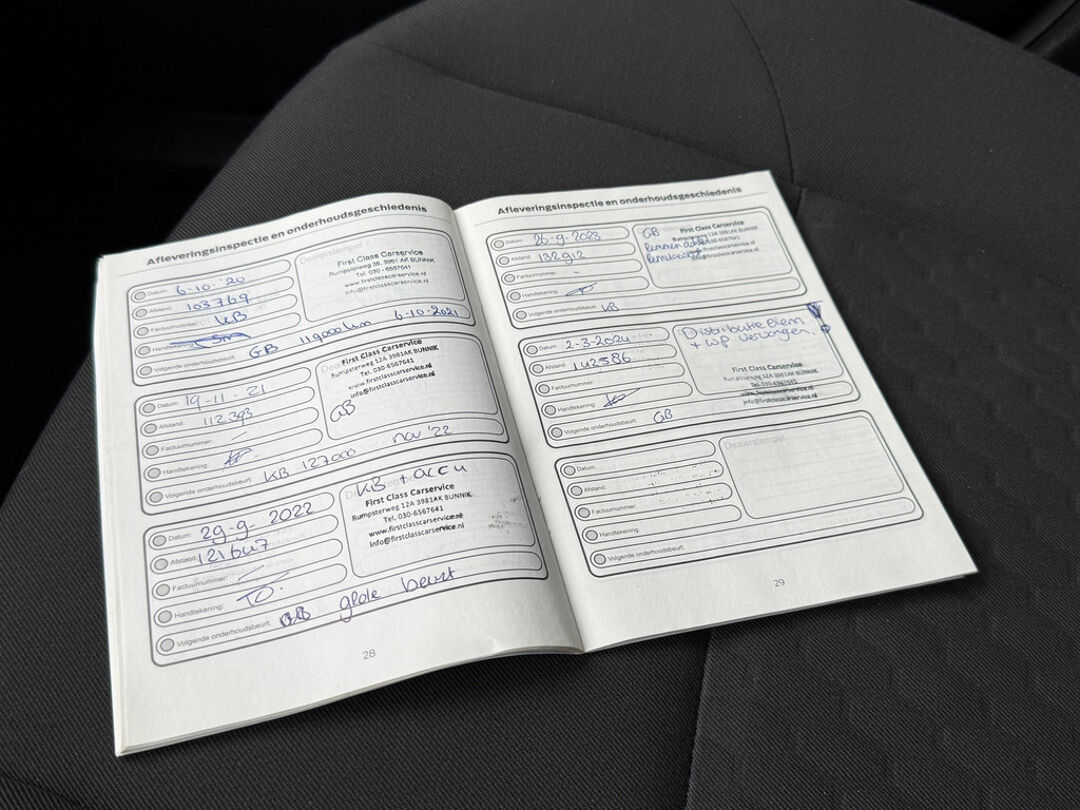 Afleveringsinspectie en onderhoudsgeschiedenis
Datum: 6-10-'20
Afstand: 103769
Factuurnummer: KB
Handtekening:
Volgende onderhoudsbeurt: GB 119000km 6-10-2021
Dealerstempel
First Class Carservice
Rumpsterweg 36, 3981 AK BUNNIK
Tel. 030 - 6567641
www.firstclasscarservice.nl
info@firstclasscarservice.nl
Datum: 19-11-21
Afstand: 112393
Factuurnummer: -
Handtekening:
Volgende onderhoudsbeurt: KB 127000 nov '22
First Class Carservice
Rumpsterweg 12A 3981AK BUNNIK
Tel. 030-6567641
www.firstclasscarservice.nl
info@firstclasscarservice.nl
GB
Datum: 29-9-2022
Afstand: 121647
Factuurnummer:
Handtekening:
Volgende onderhoudsbeurt: GB grote beurt
KB + accu
First Class Carservice
Rumpsterweg 12A 3981AK BUNNIK
Tel. 030-6567641
www.firstclasscarservice.nl
info@firstclasscarservice.nl
28
Afleveringsinspectie en onderhoudsgeschiedenis
Datum: 26-9-2023
Afstand: 132912
Factuurnummer: -
Handtekening:
Volgende onderhoudsbeurt: KB
GB
First Class Carservice
Rumpsterweg 12A 3981AK BUNNIK
Tel. 030-6567641
www.firstclasscarservice.nl
info@firstclasscarservice.nl
remmen achter
remvloeistof
Datum: 2-3-2024
Afstand: 142586
Factuurnummer:
Handtekening:
Volgende onderhoudsbeurt: GB
Distributieriem
+ WP vervangen.
First Class Carservice
Rumpsterweg 12A 3981AK BUNNIK
Tel. 030-6567641
www.firstclasscarservice.nl
info@firstclasscarservice.nl
Datum:
Afstand:
Factuurnummer:
Handtekening:
Volgende onderhoudsbeurt:
Dealerstempel
29